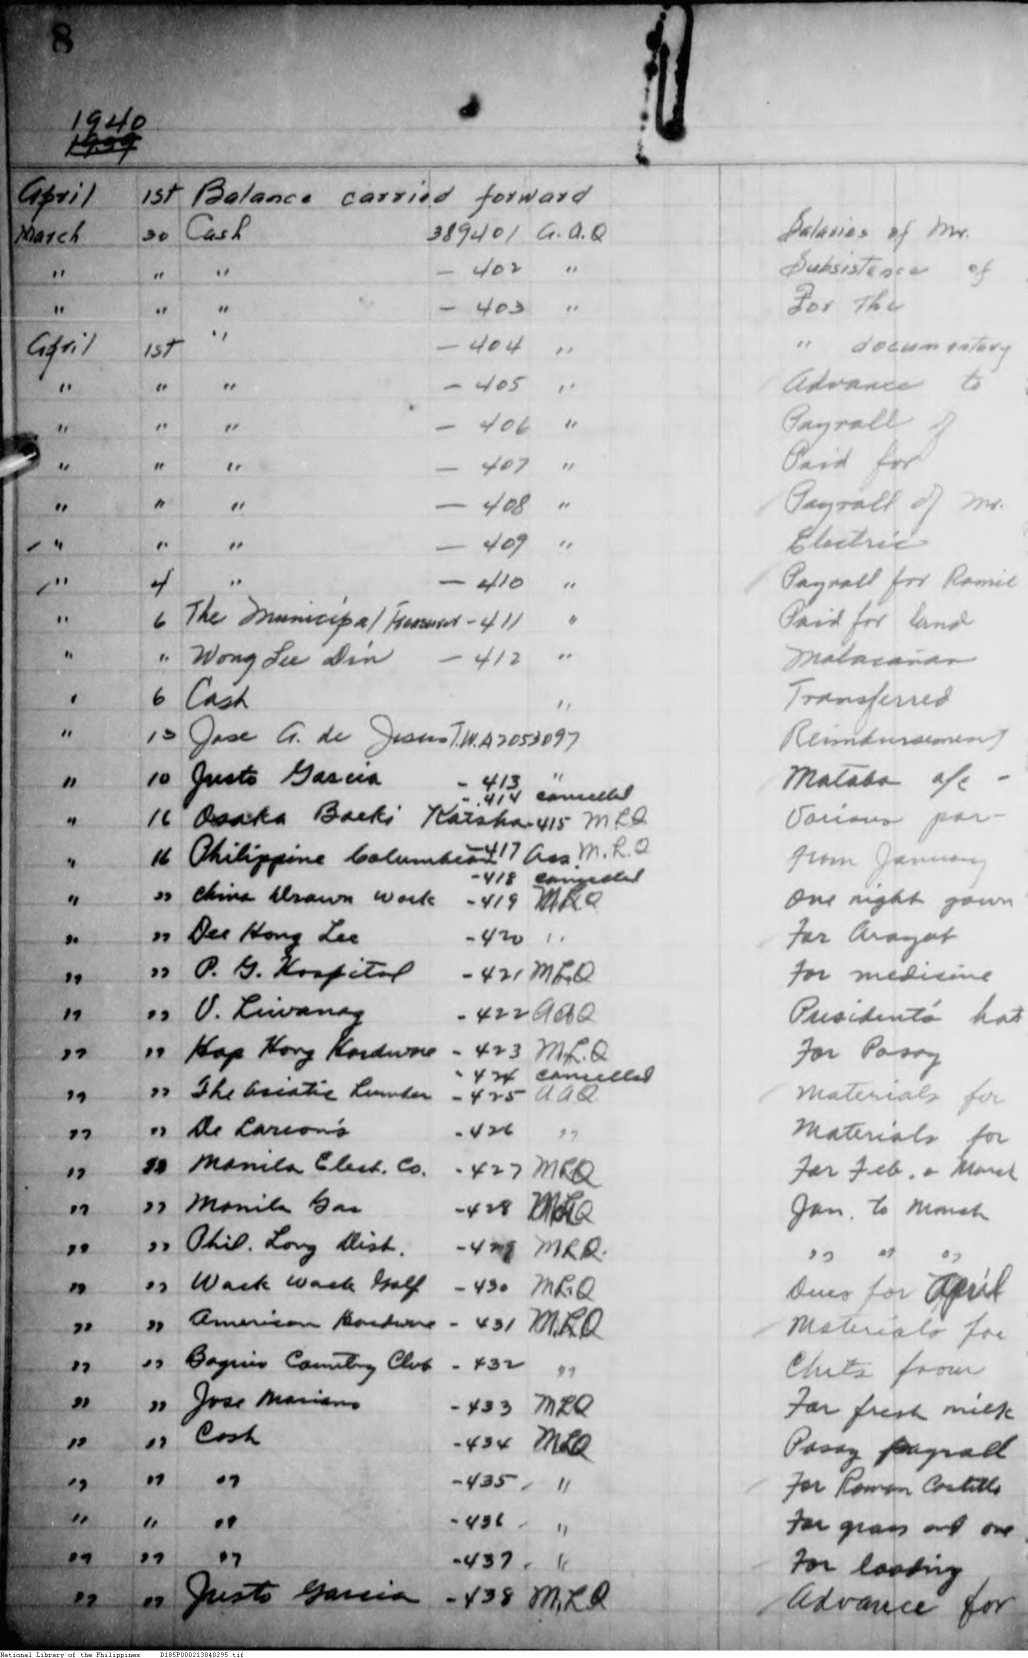 8
1940
1939
April 1st Balance carried forward
March 30 Cash 389401 A.A.Q Salaries of Mr.
" " " - 402 " Subsistence of
" " " - 403 " For the
April 1st " - 404 " " documentary
" " " - 405 " Advance to
" " " - 406 " Payroll of
" " " - 407 " Paid for
" " " - 408 " Payroll of Mr.
" " " - 409 " Electric
" 4 " - 410 " Payroll for
" 6 The Municipal Treasurer - 411 " Paid for land
" " Wong Lee Din - 412 " Malacañan
" 6 Cash " Transferred
" 13 Jose A. de Jesus T.W.A 2053097 Reimbursement
" 10 Justo Garcia - 413 " a/c -
- 414 cancelled
" 16 Osaka Boeki Kaisha - 415 MLQ Various par-
" 16 Philippine Columbian - 417 Ass. M.L.Q from January
- 418 cancelled
" " China Drawn Work - 419 MLQ One night gown
" " Dee Hong Lee - 420 " For Arayat
" " P. G. Hospital - 421 MLQ For medicine
" " V. Liwanag - 422 AAQ President's hat
" " Hap Hong Hardware - 423 M.L.Q For Pasay
- 424 cancelled
" " The Asiatic Lumber - 425 AAQ Materials for
" " De Larson's - 426 " Materials for
" " Manila Elect. Co. - 427 MLQ For Feb. & March
" " Manila Gas - 428 MLQ Jan. to March
" " Phil. Long Dist. - 429 MLQ. " " "
" " Wack Wack Golf - 430 MLQ Dues for April
" " American Hardware - 431 M.L.Q Materials for
" " Baguio Country Club - 432 " Chits from
" " Jose Mariano - 433 MLQ For fresh milk
" " Cash - 434 MLQ Pasay payroll
" " " - 435 " For Roman Costillo
" " " - 436 " For grass and one
" " " - 437 " For loading
" " Justo Garcia - 438 M.L.Q Advance for
National Library of the Philippines D185P000213040295.tif